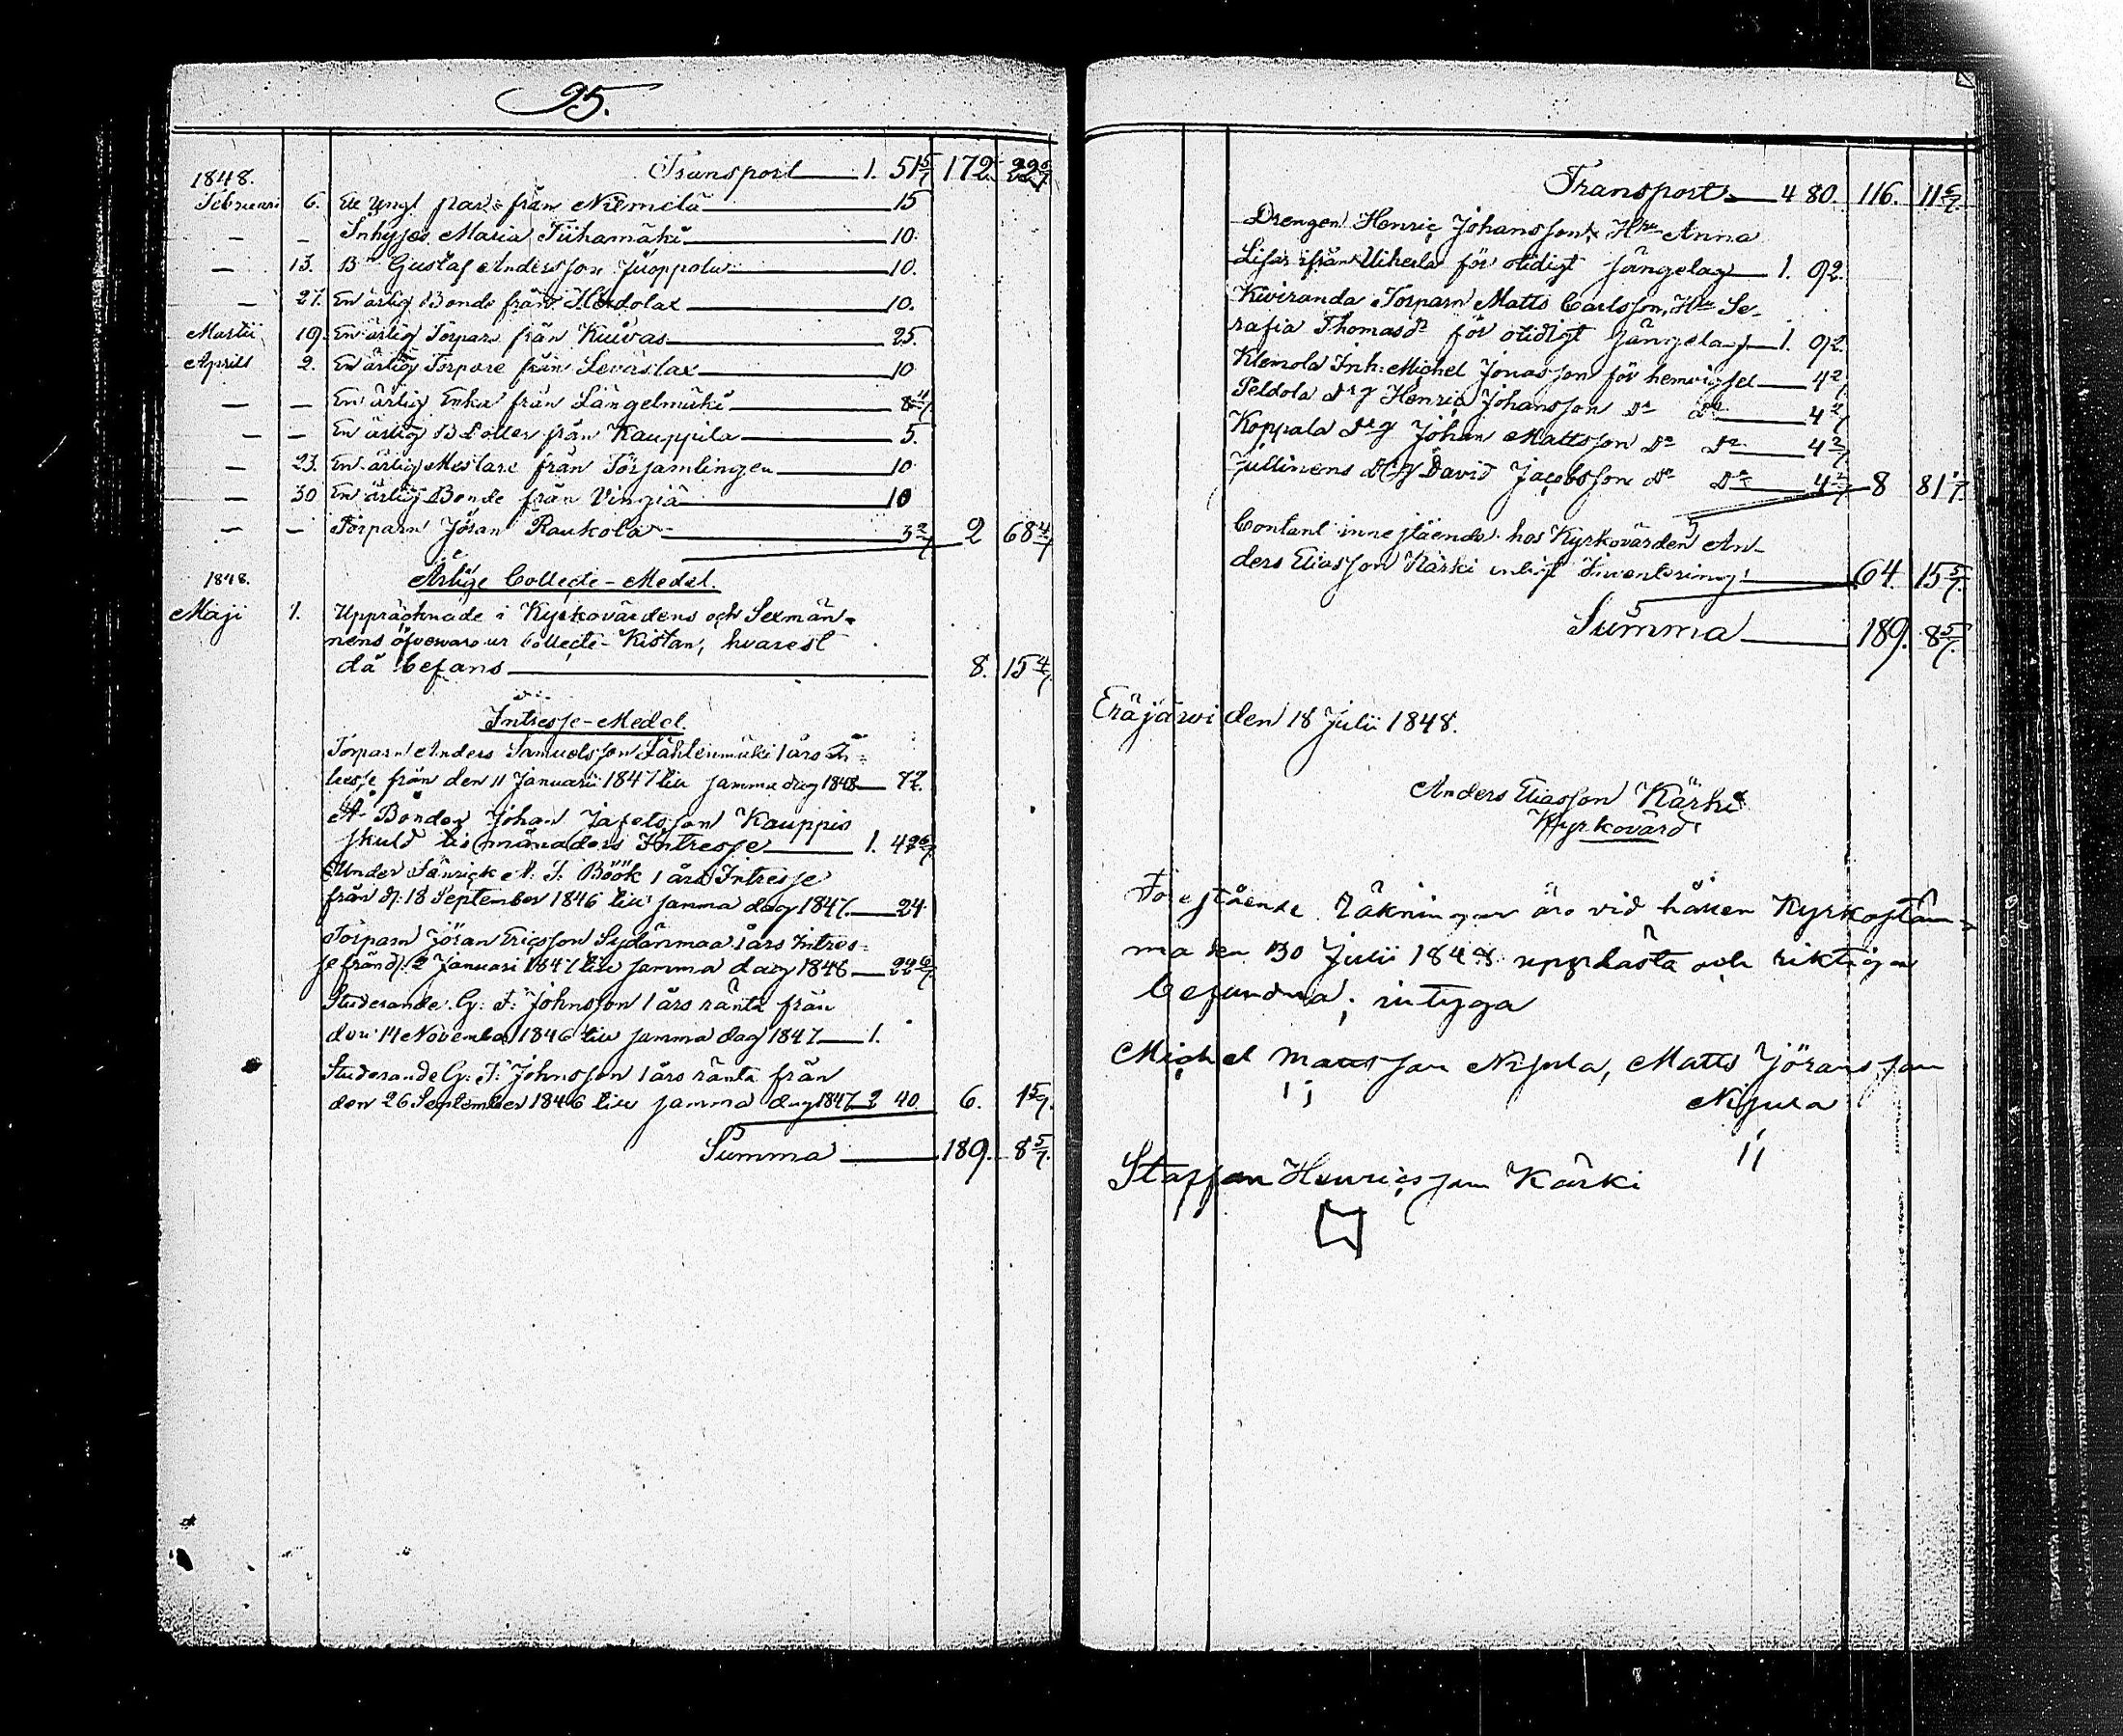 95.
Transport 1. 51 5/7 172. 22 6/7
1848.
Februari 6. Ett Ungt par från Niemelä 15
— — Inhyses Maria Tiihamäki 10.
— 13. Bn Gustaf Andersson Juoppola 10.
— 27. En ärlig Bonde från 10.
Martii 19. En ärlig Torpare från Kuivas 25.
Aprill 2. En ärlig Torpare från Leväslax 10
— — En ärlig Enka från Längelmäki 8 4/7
— — En ärlig B Dotter från Kauppila 5.
— 23. En ärlig Mästare från Församlingen 10
— 30 En ärlig Bonde från Vingiä 10
— — Torparn Jöran Raukola 3 2/7 2 68 4/7
1848. Årlige Collecte-Medel.
Maji 1. Uppräknade i Kyrkovärdens och Sexmän-
nens öfvervaro ur Collecte-Kistan, hvarest
då befans 8. 15 4/7
Intresse-Medel.
Torparn Anders Samuelsson Lähtenmäki 1 års In-
tresse från den 11 Januarii 1847 till samma dag 1848 72.
Å Bonden Johan Kauppis
skuld tio månaders Intresse 1. 42 6/7
Under N. F. Böök 1 års Intresse
från d: 18 September 1846 till samma dag 1847. 24.
Torparn Jöran Ericsson Sydänmaa 1 års Intres-
se från d: 2 Januari 1847 till samma dag 1848 22 6/7
Studerande G: F: Johnsson 1 års ränta från
den 14 November 1846 till samma dag 1847 1.
Studerande G: F: Johnsson 1 års ränta från
den 26 September 1846 till samma dag 1847 2 40. 6. 1 5/7.
Summa 189. 8 5/7.
Transport 4 80. 116. 11 6/7.
Drengen Henric Johansson, Hru Anna
Lisa ifrån Uiherla för otidigt sängelag 1. 92.
Kiviranda Torparn Matts Carlsson, Hru Se-
rafia Thomasdr för otidigt sängelag 1. 92.
Klemola Inh: Michel Jonasson för hemvigsel 4 2/7
Peldola Drg Henric Johansson Do Do 4 2/7
Koppala Drg Johan Mattsson Do Do 4 2/7
Jullinens Drg David Jacobsson Do Do 4 2/7 8 81 1/7.
Contant innestående hos Kyrkovärden An-
ders Eliasson Kärki enligt Inventering 64. 15 5/7.
Summa 189. 8 5/7.
Eräjärvi den 18 Julii 1848.
Anders Eliasson Kärki
Kyrkovärd
Förestående Räkningar äro vid hållen Kyrkostäm-
ma den 30 Julii 1848 upplästa och riktiga
befundna; intyga
Michel Mattsson Nijula, Matts Jöransson
Nijula
Staffan Henricsson Kärki